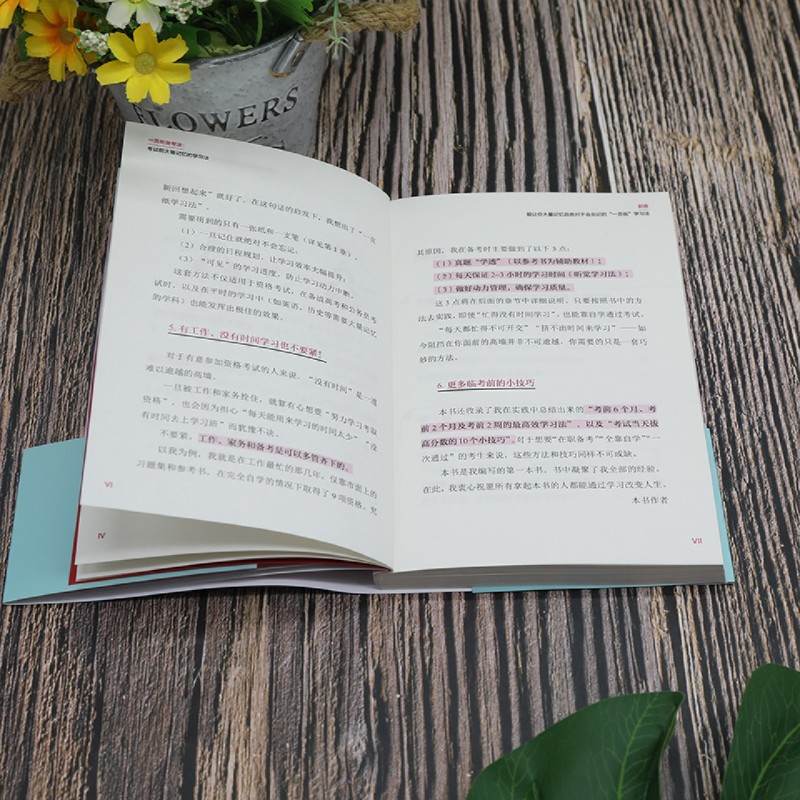 FLOWERS
一页纸备考法：
考试前大量记忆的学习法
新回想起来”就好了。在这句话的启发下，我想出了“一页
纸学习法”。
需要用到的只有一张纸和一支笔（详见第1章）。
（1）一旦记住就绝对不会忘记。
（2）合理的日程规划，让学习效率大幅提升。
（3）“可见”的学习进度，防止学习动力中断。
这套方法不仅适用于资格考试，在备战高考和公务员考
试时，以及在平时的学习中（如英语、历史等需要大量记忆
的学科）也能发挥出极佳的效果。
5. 有工作、没有时间学习也不要紧！
对于有意参加资格考试的人来说，“没有时间”是一道
难以逾越的高墙。
一旦被工作和家务拴住，就算有心想要“努力学习考取
资格”，也会因为担心“每天能用来学习的时间太少”“没
有时间去上学习班”而犹豫不决。
不要紧，工作、家务和备考是可以多管齐下的。
以我为例，我就是在工作最忙的那几年，仅靠市面上的
习题集和参考书，在完全自学的情况下取得了9项资格，究
VI
IV
前言
能让你大量记忆且绝对不会忘记的“一页纸”学习法
其原因，我在备考时主要做到了以下3点：
（1）真题“学透”（以参考书为辅助教材）；
（2）每天保证2~3小时的学习时间（听觉学习法）；
（3）做好动力管理，确保学习质量。
这3点将在后面的章节中详细说明，只要按照书中的方
法去实践，即使“忙得没有时间学习”，也能靠自学通过考试。
“每天都忙得不可开交”“挤不出时间来学习”——如
今阻挡在你面前的高墙并非不可逾越，你需要的只是一套巧
妙的方法。
6. 更多临考前的小技巧
本书还收录了我在实践中总结出来的“考前6个月、考
前2个月及考前2周的最高效学习法”，以及“考试当天拔
高分数的10个小技巧”。对于想要“在职备考”“全靠自学”“一
次通过”的考生来说，这些方法和技巧同样不可或缺。
本书是我编写的第一本书。书中凝聚了我全部的经验。
在此，我衷心祝愿所有拿起本书的人都能通过学习改变人生。
本书作者
VII